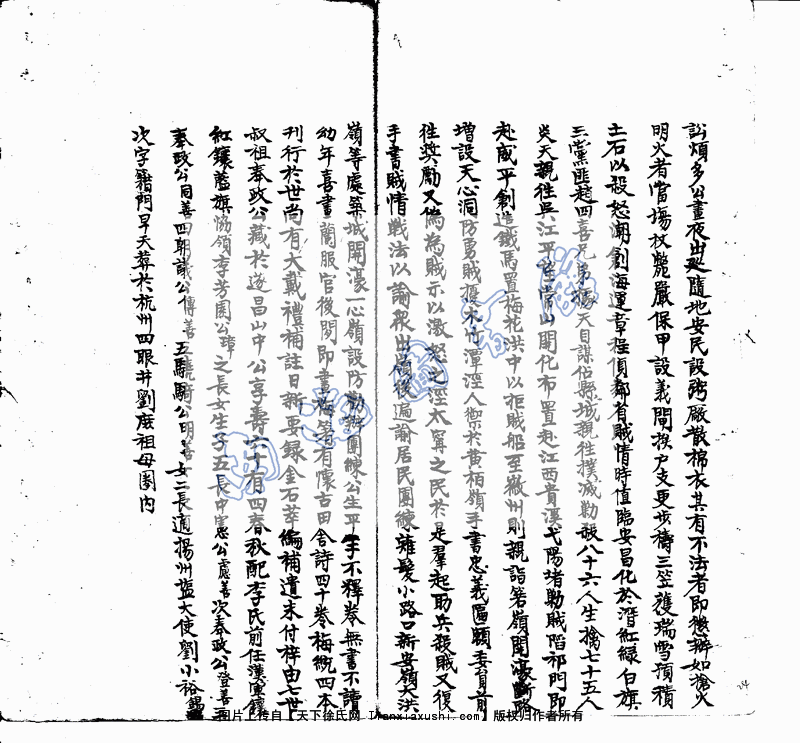 訟煩多公晝夜出廵隨地安民設粥廠散棉衣其有不法者即懲辦如搶火
明火者當塲杖斃嚴保甲設義閘挨户支更步禱三笠護瑞雪預積
土石以殺怒潮創海運章程偵鄰省賊情時值臨安昌化於潛紅綠白旗
三黨匪趙四喜兄弟擾天目謀佔縣城親徃撲滅勦殺八十六人生擒七十五人
炎天親徃吳江平 常山開化布置赴江西貴溪弋陽堵勦賊陷祁門即
赴咸平創造鐵馬置梅花洪中以拒賊船至徽州則親詣箬嶺開濠斷路
增設天心洞防勇賊擾木竹潭涇人禦於黄柏嶺手書忠義匾額委員前
徃奬勵又僞為賊示以激怒之涇太寗之民於是羣起助兵殺賊又復
手書賊情戰法以諭衆出嶺後遍諭居民團練薙髮小路口新安嶺大洪
嶺等處築城開濠一心嶺設防勦辦團練公生平手不釋卷無書不讀
幼年喜畫蘭服官後閒即畫梅著有懷古田舍詩四十卷梅統四本
刊行於世尚有大戴禮補註日新要錄金石萃編補遺未付梓由七世
叔祖奉政公藏於遂昌山中公享壽六十有四春秋配李氏前任漢軍鑲
紅鑲藍旗協領李芳園公璋之長女生子五長中憲公慶善次奉政公澄善三
奉政公同善四朝議公傳善五驍騎公明善女二長適揚州盬大使劉小裕錫
次字籍門早夭葬於杭州四眼井劉庶祖母園内
图片上传自【天下徐氏网 Tianxiaxushi.com】版权归作者所有